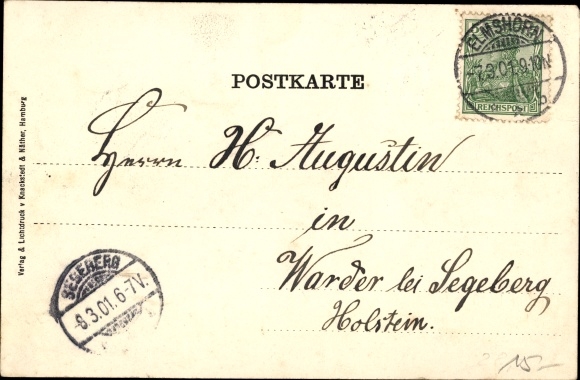 ELMSHORN
7.3.01.9-10N
REICHSPOST
POSTKARTE
Herrn H. Augustin
in
Warder bei Segeberg
Holstein.
SEGEBERG
-8.3.01.6-7V.
Verlag & Lichtdruck v Knackstedt & Näther, Hamburg
15-